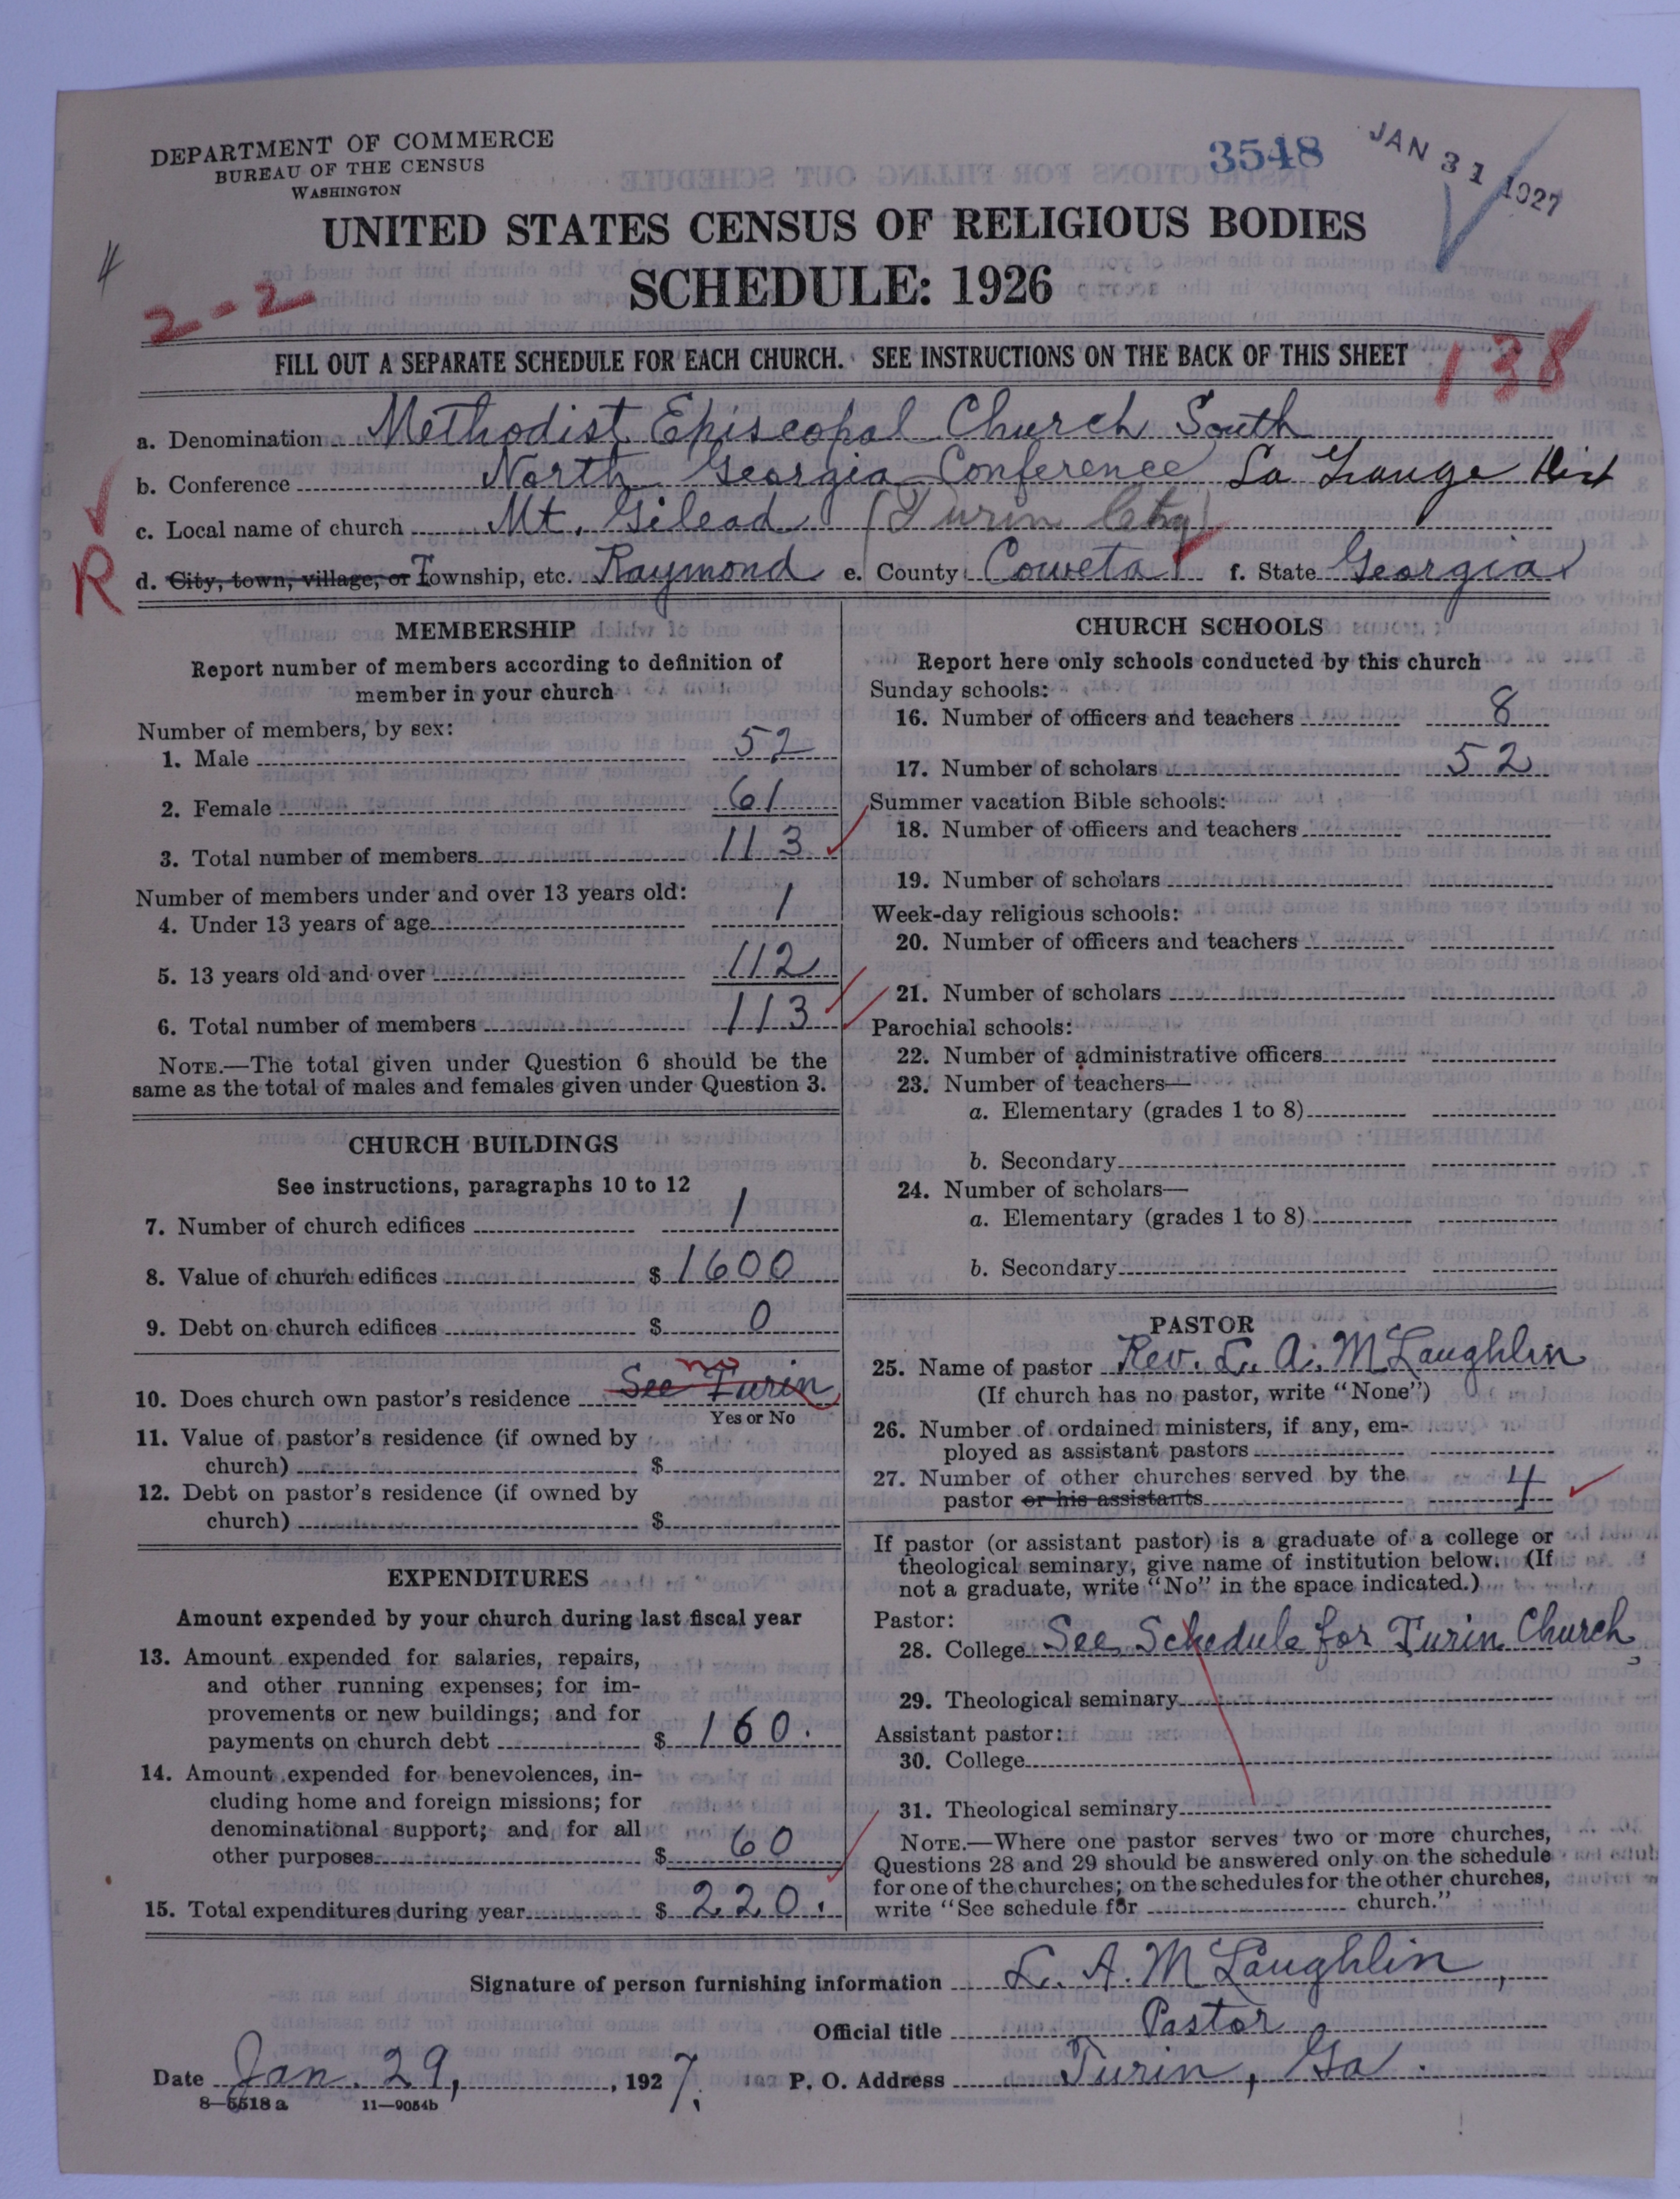 DEPARTMENT OF COMMERCE
BUREAU OF THE CENSUS
WASHINGTON
3548
JAN 31 1927
UNITED STATES CENSUS OF RELIGIOUS BODIES
SCHEDULE: 1926
2-2
FILL OUT A SEPARATE SCHEDULE FOR EACH CHURCH. SEE INSTRUCTIONS ON THE BACK OF THIS SHEET
138
a. Denomination Methodist Episcopal Church South
b. Conference North Georgia Conference La Grange Dist
c. Local name of church Mt. Gilead (Turin
R
d. City, town, village, or Township, etc. Raymond e. County Coweta f. State Georgia
MEMBERSHIP
Report number of members according to definition of
member in your church
Number of members, by sex:
1. Male 52
2. Female 61
3. Total number of members 113
Number of members under and over 13 years old:
4. Under 13 years of age 1
5. 13 years old and over 112
6. Total number of members 113
NOTE.—The total given under Question 6 should be the
same as the total of males and females given under Question 3.
CHURCH BUILDINGS
See instructions, paragraphs 10 to 12
7. Number of church edifices 1
8. Value of church edifices $ 1600
9. Debt on church edifices $ 0
no
10. Does church own pastor's residence See Turin
Yes or No
11. Value of pastor's residence (if owned by
church) $
12. Debt on pastor's residence (if owned by
church) $
EXPENDITURES
Amount expended by your church during last fiscal year
13. Amount expended for salaries, repairs,
and other running expenses; for im-
provements or new buildings; and for
payments on church debt $ 160.
14. Amount expended for benevolences, in-
cluding home and foreign missions; for
denominational support; and for all
other purposes $ 60
15. Total expenditures during year $ 220.
CHURCH SCHOOLS
Report here only schools conducted by this church
Sunday schools:
16. Number of officers and teachers 8
17. Number of scholars 52
Summer vacation Bible schools:
18. Number of officers and teachers
19. Number of scholars
Week-day religious schools:
20. Number of officers and teachers
21. Number of scholars
Parochial schools:
22. Number of administrative officers
23. Number of teachers—
a. Elementary (grades 1 to 8)
b. Secondary
24. Number of scholars—
a. Elementary (grades 1 to 8)
b. Secondary
PASTOR
25. Name of pastor Rev. L. A. McLaughlin
(If church has no pastor, write "None")
26. Number of ordained ministers, if any, em-
ployed as assistant pastors
27. Number of other churches served by the
pastor or his assistants 4
If pastor (or assistant pastor) is a graduate of a college or
theological seminary, give name of institution below. (If
not a graduate, write "No" in the space indicated.)
Pastor:
28. College See Schedule for Turin Church
29. Theological seminary
Assistant pastor:
30. College
31. Theological seminary
NOTE.—Where one pastor serves two or more churches,
Questions 28 and 29 should be answered only on the schedule
for one of the churches; on the schedules for the other churches,
write "See schedule for church."
Signature of person furnishing information L. A. McLaughlin,
Official title Pastor
Date Jan. 29, 1927. P. O. Address Turin, Ga.
8—5518 a 11—9054b